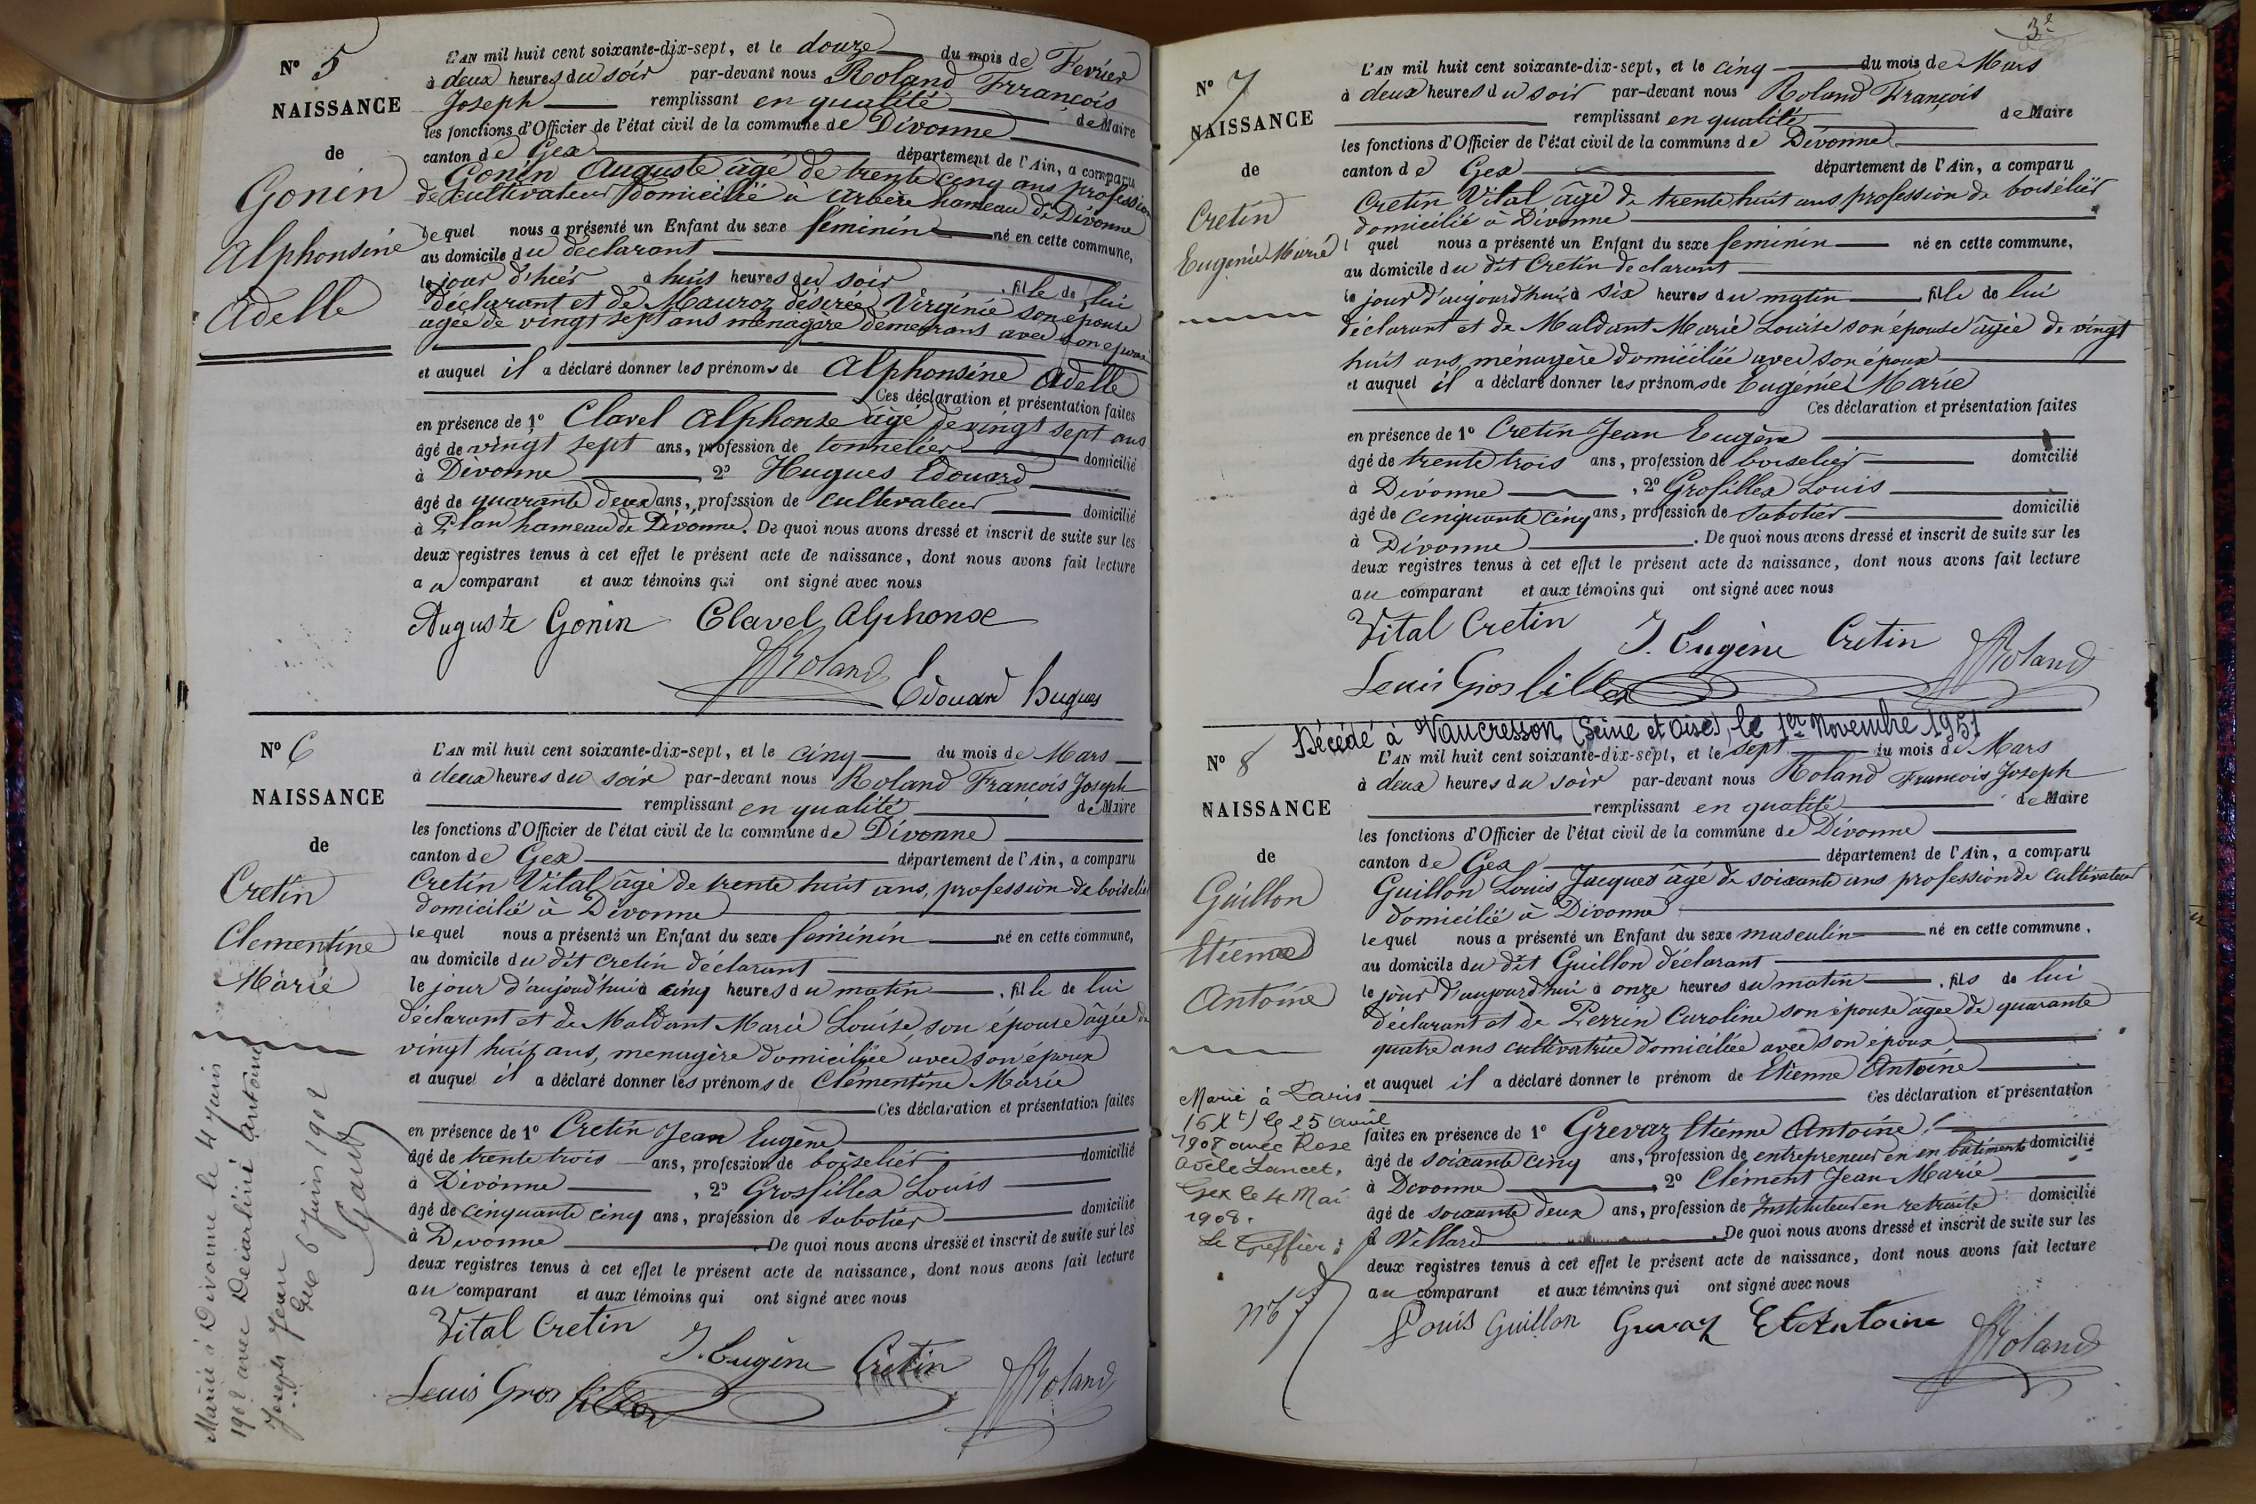 N° 5
NAISSANCE
de
Gonin
Alphonsine
Adelle
L'AN mil huit cent soixante-dix-sept, et le douze du mois de Fevrier
à deux heures du soir par-devant nous Roland Francois
Joseph remplissant en qualité de Maire
les fonctions d'Officier de l'état civil de la commune de Divonne
canton de Gex département de l'Ain, a comparu
Gonin Auguste âgé de trente cinq ans profession
de cultivateur domicilié à Arbère hameau de Divonne
lequel nous a présenté un Enfant du sexe féminin né en cette commune,
au domicile du déclarant
le jour d'hier à huit heures du soir , fille de lui
déclarant et de Mauroz désirée Virginie son épouse
agée de vingt sept ans ménagère demeurans avec son époux
et auquel il a déclaré donner les prénoms de Alphonsine Adelle
Ces déclaration et présentation faites
en présence de 1° Clavel Alphonse âgé de vingt sept ans
âgé de vingt sept ans, profession de tonnelier domicilié
à Divonne , 2° Hugues Edouard
âgé de quarante deux ans, profession de cultivateur domicilié
à Plan hameau de Divonne. De quoi nous avons dressé et inscrit de suite sur les
deux registres tenus à cet effet le présent acte de naissance, dont nous avons fait lecture
au comparant et aux témoins qui ont signé avec nous
Auguste Gonin Clavel Alphonse
Roland Edouard hugues
N° 6
NAISSANCE
de
Cretin
Clementine
Marie
Mariée à Divonne le 4 juin
1902 avec
Joseph
Gex 6 Juin 1902
L'AN mil huit cent soixante-dix-sept, et le cinq du mois de Mars
à deux heures du soir par-devant nous Roland François Joseph
remplissant en qualité de Maire
les fonctions d'Officier de l'état civil de la commune de Divonne
canton de Gex département de l'Ain, a comparu
Cretin Vital âgé de trente huit ans, profession de boiselier
domicilié à Divonne
lequel nous a présenté un Enfant du sexe féminin né en cette commune,
au domicile du dit Cretin déclarant
le jour d'aujourd'hui à cinq heures du matin , fille de lui
déclarant et de Maldant Marie Louise, son épouse âgée de
vingt huit ans, menagère domiciliée avec son époux
et auquel il a déclaré donner les prénoms de Clémentine Marie
Ces déclaration et présentation faites
en présence de 1° Cretin Jean Eugène
âgé de trente trois ans, profession de boiselier domicilié
à Divonne , 2° Grosfillex Louis
âgé de cinquante cinq ans, profession de sabotier domicilié
à Divonne De quoi nous avons dressé et inscrit de suite sur les
deux registres tenus à cet effet le présent acte de naissance, dont nous avons fait lecture
au comparant et aux témoins qui ont signé avec nous
Vital Cretin J. Eugène Cretin
Louis Grosfillex Roland
3e
N° 7
NAISSANCE
de
Cretin
Eugenie Marie
L'AN mil huit cent soixante-dix-sept, et le cinq du mois de Mars
à deux heures du soir par-devant nous Roland François
remplissant en qualité de Maire
les fonctions d'Officier de l'état civil de la commune de Divonne
canton de Gex département de l'Ain, a comparu
Cretin Vital âgé de trente huit ans profession de boisélier
domicilié à Divonne
lequel nous a présenté un Enfant du sexe feminin né en cette commune,
au domicile du dit Cretin declarant
le jour d'aujourd'hui à six heures du matin , fille de lui
déclarant et de Maldant Marie Louise son épouse âgée de vingt
huit ans ménagère domiciliée avec son époux
et auquel il a déclaré donner les prénoms de Eugénie Marie
Ces déclaration et présentation faites
en présence de 1° Cretin Jean Eugène
âgé de trente trois ans, profession de boiselier domicilié
à Divonne , 2° Grosfillex Louis
âgé de cinquante cinq ans, profession de sabotier domicilié
à Divonne . De quoi nous avons dressé et inscrit de suite sur les
deux registres tenus à cet effet le présent acte de naissance, dont nous avons fait lecture
au comparant et aux témoins qui ont signé avec nous
Vital Cretin J. Eugène Cretin
Louis Grosfillex Roland
Décédé à Vaucresson (Seine et Oise) le 1er Novembre 1951
N° 8
NAISSANCE
de
Guillon
Etienne
Antoine
Marié à Paris
(16 Xt) le 25 avril
1908 avec Rose
Adèle Lancet,
Gex le 4 Mai
1908.
Le Greffier :
L'AN mil huit cent soixante-dix-sept, et le sept du mois de Mars
à deux heures du soir par-devant nous Roland Francois Joseph
remplissant en qualité de Maire
les fonctions d'Officier de l'état civil de la commune de Divonne
canton de Gex département de l'Ain, a comparu
Guillon Louis Jacques âgé de soixante ans profession de cultivateur
domicilié à Divonne
lequel nous a présenté un Enfant du sexe masculin né en cette commune,
au domicile du dit Guillon déclarant
le jour d'aujourd'hui à onze heures du matin , fils de lui
déclarant et de Perrin Caroline son épouse âgée de quarante
quatre ans cultivatrice domiciliée avec son époux
et auquel il a déclaré donner le prénom de Etienne Antoine
Ces déclaration et présentation
faites en présence de 1° Grevaz Etienne Antoine
âgé de soixante cinq ans, profession de entrepreneur en en batiments domicilié
à Divonne , 2° Clément Jean Marie
âgé de soixante deux ans, profession de Instituteur en retraite domicilié
à Villard . De quoi nous avons dressé et inscrit de suite sur les
deux registres tenus à cet effet le présent acte de naissance, dont nous avons fait lecture
au comparant et aux témoins qui ont signé avec nous
Louis Guillon Grevaz Et Antoine Roland